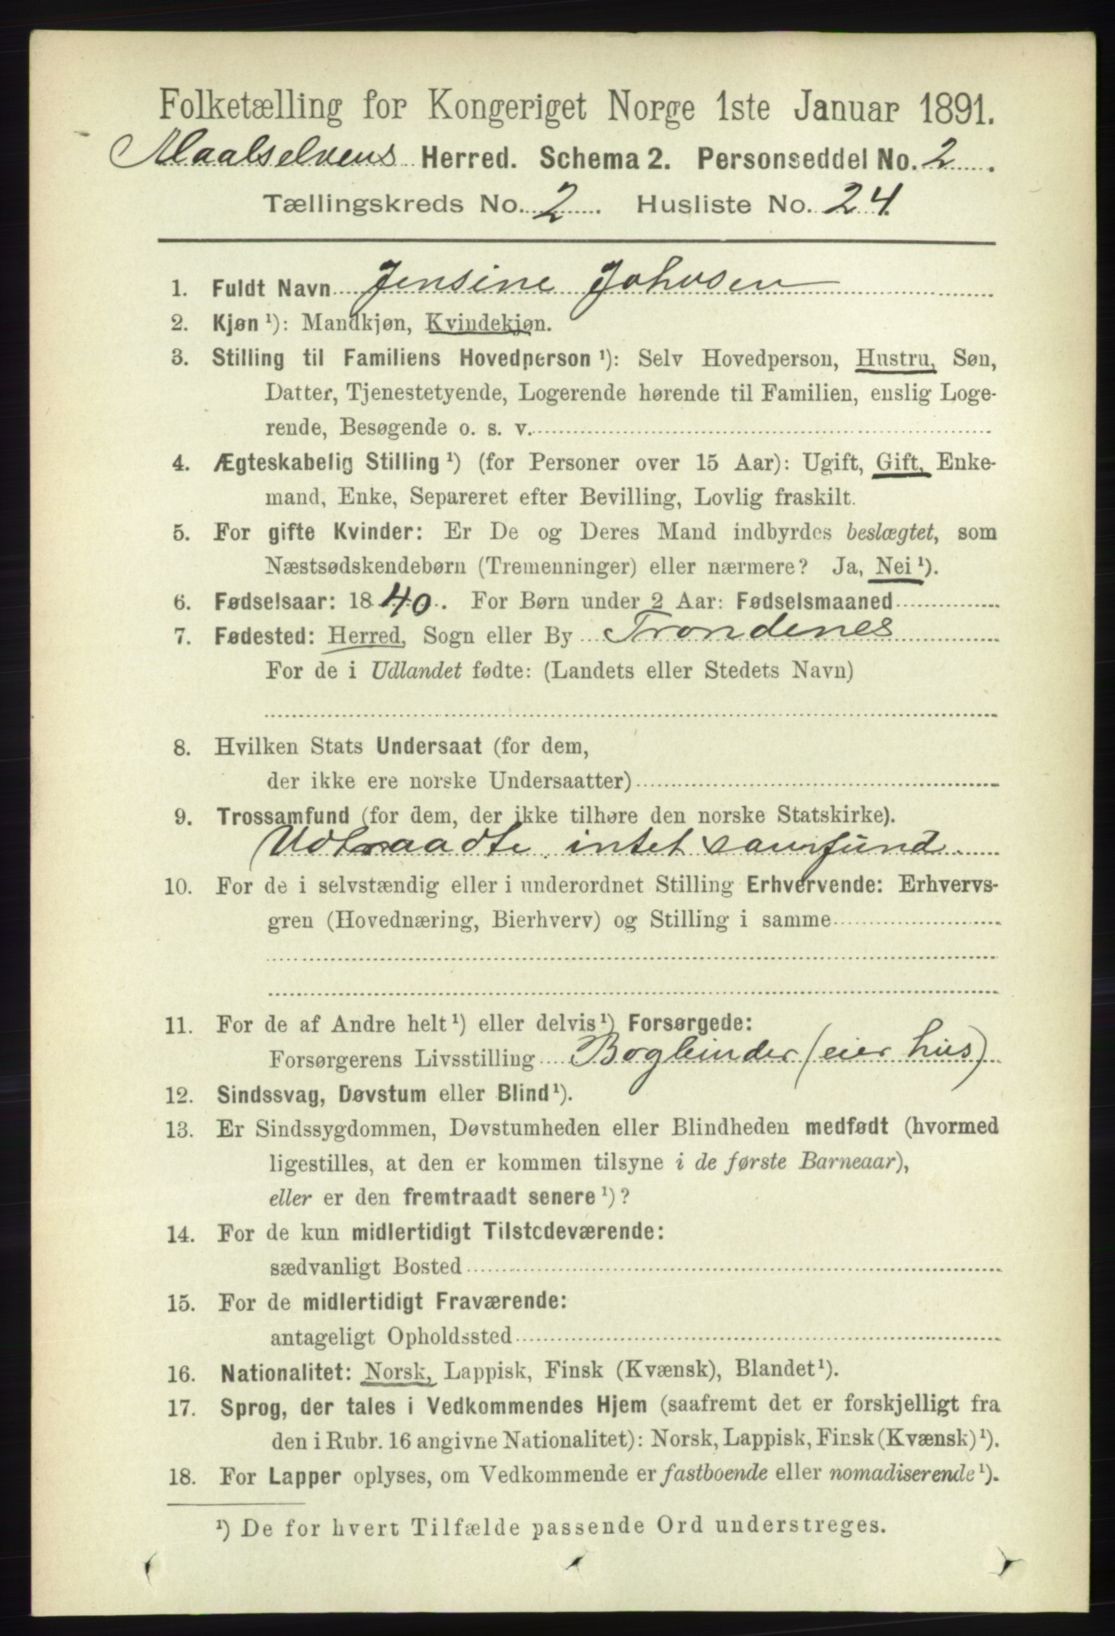 Folketælling for Kongeriget Norge 1ste Januar 1891.
Maalselvens Herred. Schema 2. Personseddel No. 2
Tællingskreds No. 2. Husliste No. 24
1. Fuldt Navn Jensine Johnsen
2. Kjøn ¹): Mandkjøn, Kvindekjøn.
3. Stilling til Familiens Hovedperson ¹): Selv Hovedperson, Hustru, Søn,
Datter, Tjenestetyende, Logerende hørende til Familien, enslig Loge-
rende, Besøgende o. s. v.
4. Ægteskabelig Stilling ¹) (for Personer over 15 Aar): Ugift, Gift, Enke-
mand, Enke, Separeret efter Bevilling, Lovlig fraskilt.
5. For gifte Kvinder: Er De og Deres Mand indbyrdes beslægtet, som
Næstsødskendebørn (Tremenninger) eller nærmere? Ja, Nei ¹).
6. Fødselsaar: 1840. For Børn under 2 Aar: Fødselsmaaned
7. Fødested: Herred, Sogn eller By Trondenes
For de i Udlandet fødte: (Landets eller Stedets Navn)
8. Hvilken Stats Undersaat (for dem,
der ikke ere norske Undersaatter)
9. Trossamfund (for dem, der ikke tilhøre den norske Statskirke).
Udtraadte, intet samfund.
10. For de i selvstændig eller i underordnet Stilling Erhvervende: Erhvervs-
gren (Hovednæring, Bierhverv) og Stilling i samme
11. For de af Andre helt ¹) eller delvis ¹) Forsørgede:
Forsørgerens Livsstilling Bogbinder (eier hus)
12. Sindssvag, Døvstum eller Blind ¹).
13. Er Sindssygdommen, Døvstumheden eller Blindheden medfødt (hvormed
ligestilles, at den er kommen tilsyne i de første Barneaar),
eller er den fremtraadt senere ¹)?
14. For de kun midlertidigt Tilstedeværende:
sædvanligt Bosted
15. For de midlertidigt Fraværende:
antageligt Opholdssted
16. Nationalitet: Norsk, Lappisk, Finsk (Kvænsk), Blandet ¹).
17. Sprog, der tales i Vedkommendes Hjem (saafremt det er forskjelligt fra
den i Rubr. 16 angivne Nationalitet): Norsk, Lappisk, Finsk (Kvænsk) ¹).
18. For Lapper oplyses, om Vedkommende er fastboende eller nomadiserende ¹).
¹) De for hvert Tilfælde passende Ord understreges.